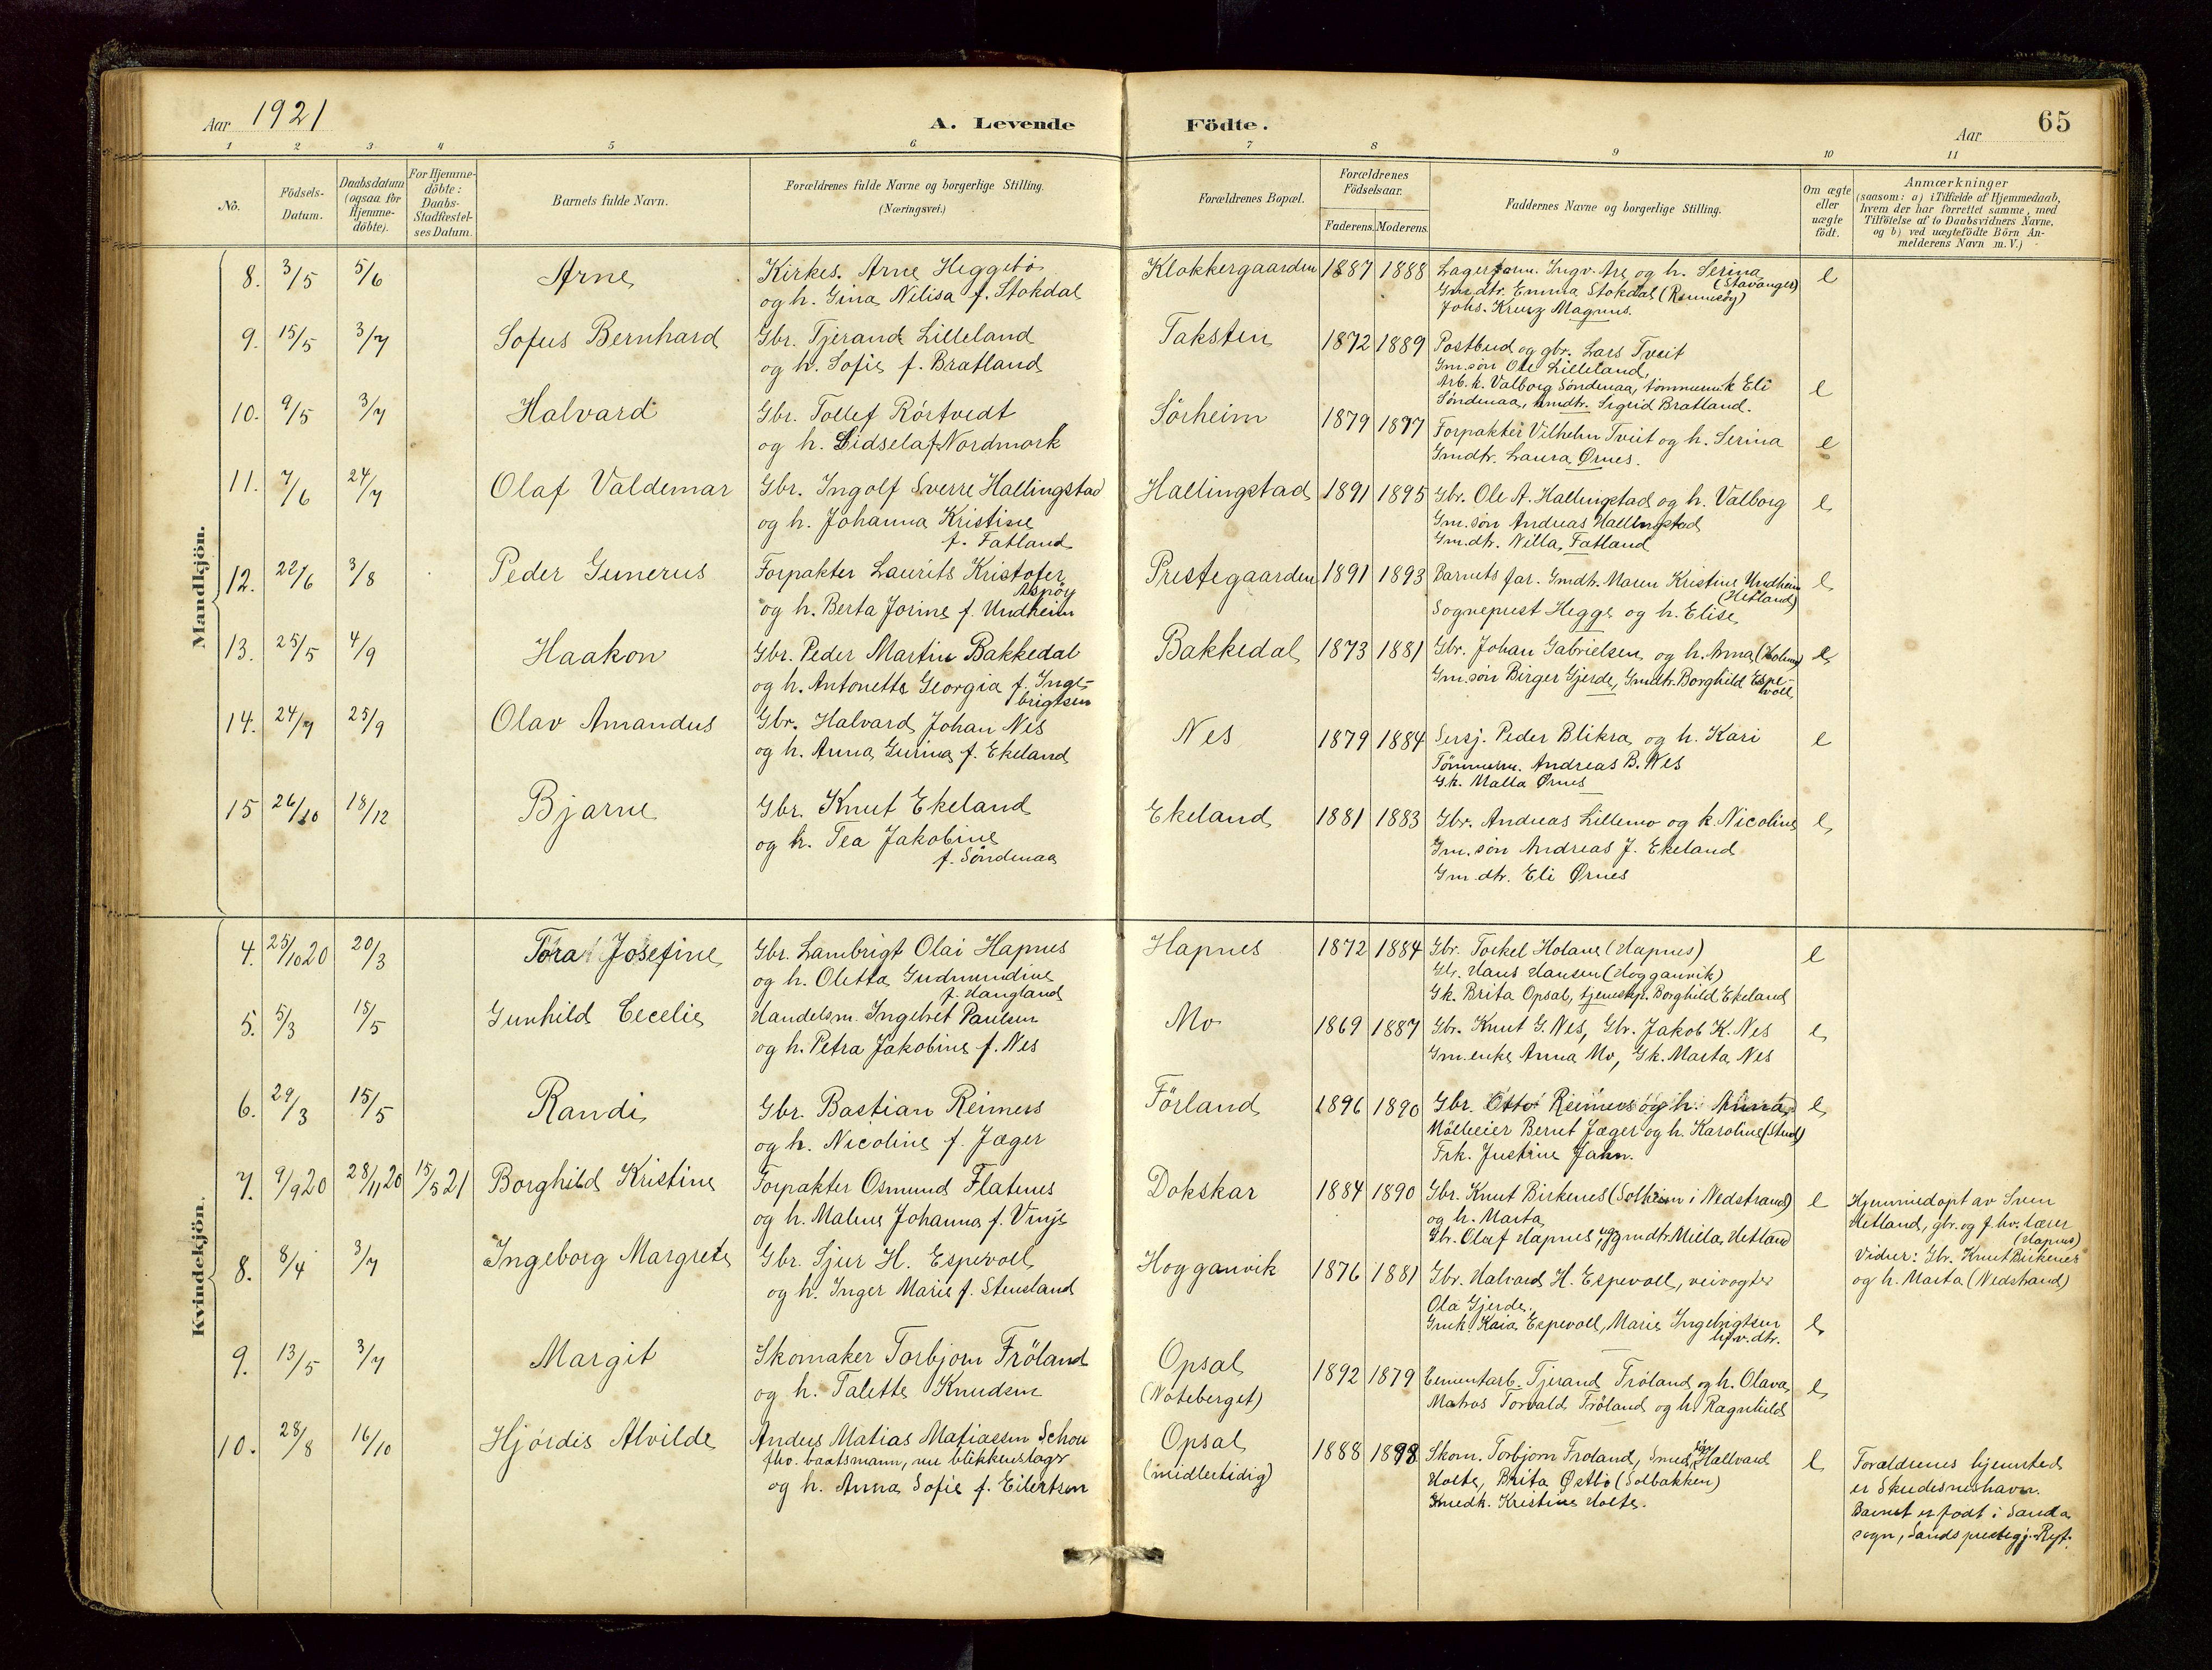 Aar 1921
A. Levende Födte.
Aar
65
1 2 3 4 5 6 7 8 9 10 11
No.
Födsels-Datum.
Daabsdatum (ogsaa for Hjemme-döbte).
For Hjemme-döbte: Daabs-Stadfæstel-ses Datum.
Barnets fulde Navn.
Forældrenes fulde Navne og borgerlige Stilling.
(Næringsvei.)
Forældrenes Bopæl.
Forældrenes Födselsaar.
Faderens. Moderens.
Faddernes Navne og borgerlige Stilling.
Om ægte eller uægte födt.
Anmærkninger
(saasom: a) i Tilfælde af Hjemmedaab,
hvem der har forrettet samme, med
Tilföielse af to Daabsvidners Navne,
og b) ved uægtefödte Börn An-
melderens Navn m. V.)
Mandkjön.
8. 3/5 5/6 Arne
Kirkes. Arne Heggebø
og h. Gina Nilisa f. Stokdal
Klokkergaarden 1887 1888
Lagerform. Ingv. Are og h. Serina
(Stavanger)
Gm.dtr. Emma Stokdal (Rennesøy)
Johs. Kruzz Magnus.
e
9. 15/5 3/7 Sofus Bernhard
Gbr. Tjerand Lilleland
og h. Sofie f. Bratland
Taksten 1872 1889
Postbud og gbr. Lars Tveit
Gm.søn Ole Lilleland,
Arb. k. Valborg Söndenaa, tömmermk Eli
Söndenaa, gmdtr. Sigrid Bratland.
e
10. 9/5 3/7 Halvard
Gbr. Tollef Rörtvedt
og h. Sidsela f. Nordmork
Sörheim 1879 1877
Forpakter Vilhelm Tveit og h. Serina
Gmdtr. Laura Ørnes.
e
11. 7/6 24/7 Olaf Valdemar
Gbr. Ingolf Sverre Hallingstad
og h. Johanna Kristine
f. Fatland
Hallingstad 1891 1895
Gbr. Ole A. Hallingstad og h. Valborg
Gm.søn Andreas Hallingstad
Gm.dtr. Nilla Fatland
e
12. 22/6 3/8 Peder Gunerus
Forpakter Laurits Kristofer
Aspøy
og h. Berta Jorine f. Undheim
Prestegaarden 1891 1893
Barnets far. Gmdtr. Maren Kristine Undheim
(Hetland)
Sogneprest Hegge og h. Elise
e
13. 25/5 4/9 Haakon
Gbr. Peder Martin Bakkedal
og h. Antonette Georgia f. Inge-
brigtsen
Bakkedal 1873 1881
Gbr. Johan Gabrielsen og h. Anna (Holme)
Gm.søn Birger Gjerde, Gmdtr. Borghild Espe-
voll
e
14. 24/7 25/9 Olav Amandus
Gbr. Halvard Johan Nes
og h. Anna Gurina f. Ekeland
Nes 1879 1884
Sersj. Peder Blikra og h. Kari
Tömmerm. Andreas B. Nes
G.k. Malla Ørnes
e
15 26/10 18/12 Bjarne
Gbr. Knut Ekeland
og h. Tea Jakobine
f. Söndenaa
Ekeland 1881 1883
Gbr. Andreas Lillemo og k. Nicoline
Gm.søn Andreas J. Ekeland
Gm.dtr. Eli Ørnes
e
Kvindekjön.
4. 25/10 20 20/3 Tora Josefine
Gbr. Lambrigt Olai Hapnes
og h. Oletta Gudmundine
f. Haugland
Hapnes 1872 1884
Gbr. Torkel Holane (Hapnes)
Gbr. Hans Hansen (Hogganvik)
Gk. Brita Opsal, tjenestp. Borghild Ekeland
e
5. 5/3 15/5 Gunhild Cecelie
Handelsm. Ingebret Paulsen
og h. Petra Jakobine f. Nes
Mo 1869 1887
Gbr. Knut G. Nes, Gbr. Jakob K. Nes
Gm.enke Anna Mo, Gk. Marta Nes
e
6. 29/3 15/5 Randi
Gbr. Bastian Reimers
og h. Nicoline f. Jæger
Förland 1896 1890
Gbr. Otto Reimers og h. Anna
Mölleier Bernt Jæger og h. Karoline
Frk. Justine Jahn.
e
7. 9/9 20 28/11 20 15/5 21 Borghild Kristine
Forpakter Osmund Flatenes
og h. Malene Johanna f. Vinje
Dokskar 1884 1890
Gbr. Knut Birkenes (Solheim i Nedstrand)
og h. Marta
Gbr. Olaf Hapnes, ug gmdtr. Milla Hetland
e
Hjemmedøpt av Sven
Hetland, gbr. og f.hv. lærer
(Hapnes)
Vidner: Gbr. Knut Birkenes
og h. Marta (Nedstrand)
8. 8/4 3/7 Ingeborg Margrete
Gbr. Sjur H. Espevoll
og h. Inger Marie f. Stensland
Hogganvik 1876 1881
Gbr. Halvard H. Espevoll, veivogter
Ola Gjerde.
Gmk. Kaia Espevoll, Marie Ingebrigtsen
e
9. 13/5 3/7 Margit
Skomaker Torbjorn Fröland
og h. Talette Knudsen
Opsal
(Noteberget)
1892 1879
Cementarb. Tjerand Fröland og h. Olava
Matros Torvald Fröland og h. Ragnhild
e
10. 28/8 16/10 Hjördis Alvilde
Anders Matias Matiassen Schou
fhv. baatsmann, nu blikkenslager
og h. Anna Sofie f. Eilertsen
Opsal
(midlertidig)
1888 1898
Skom. Torbjorn Froland, Smed Hallvard
Holte, Brita Østbö (Solbakken)
Smedk. Kristine Holte.
e
Forældrenes hjemsted
er Skudesneshavn.
Barnet er født i Sanda
sogn, Sands prestegj. Ryf.